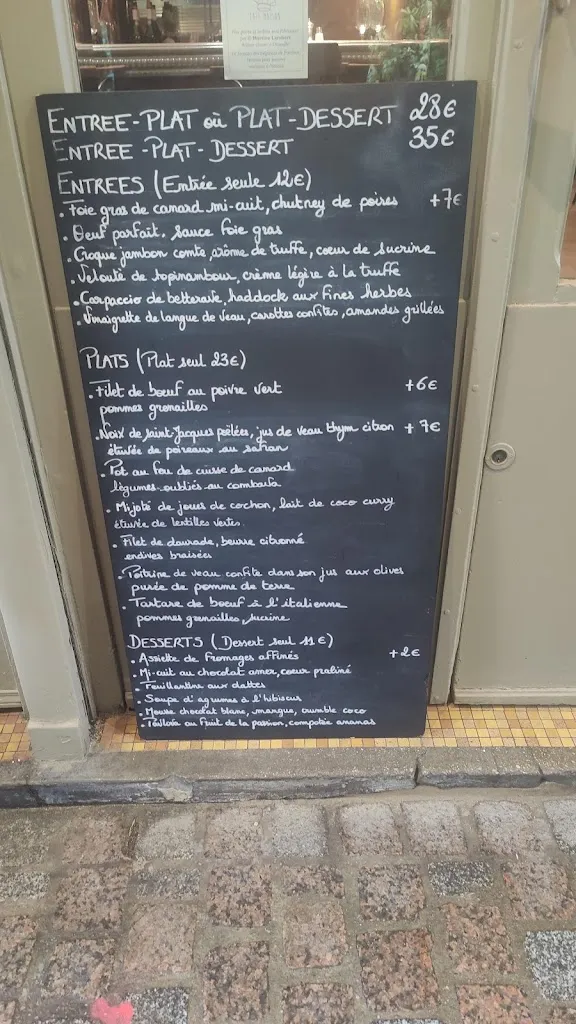 ENTREE-PLAT où PLAT-DESSERT 28€
ENTREE-PLAT-DESSERT 35€
ENTREES (Entrée seule 12€)
. Foie gras de canard mi-cuit, chutney de poires +7€
. Oeuf parfait, sauce foie gras
. Croque jambon comté arôme de truffe, coeur de sucrine
. Velouté de topinambour, crème légère à la truffe
. Carpaccio de betterave, haddock aux fines herbes
. Vinaigrette de langue de veau, carottes confites, amandes grillées
PLATS (Plat seul 23€)
. Filet de boeuf au poivre vert +6€
pommes grenailles
. Noix de Saint Jacques poêlées, jus de veau thym citron +7€
étuvée de poireaux au safran
. Pot au feu de cuisse de canard
légumes oubliés au combava
. Mijoté de joues de cochon, lait de coco curry
étuvée de lentilles vertes
. Filet de daurade, beurre citronné
endives braisées
. Poitrine de veau confite dans son jus aux olives
purée de pomme de terre
. Tartare de boeuf à l'italienne
pommes grenailles, sucrine
DESSERTS (Dessert seul 11€)
. Assiette de fromages affinés +2€
. Mi-cuit au chocolat amer, coeur praliné
. Feuillantine aux dattes
. Soupe d'agrumes à l'hibiscus
. Mousse chocolat blanc, mangue, crumble coco
. Pavlova au fruit de la passion, compotée ananas